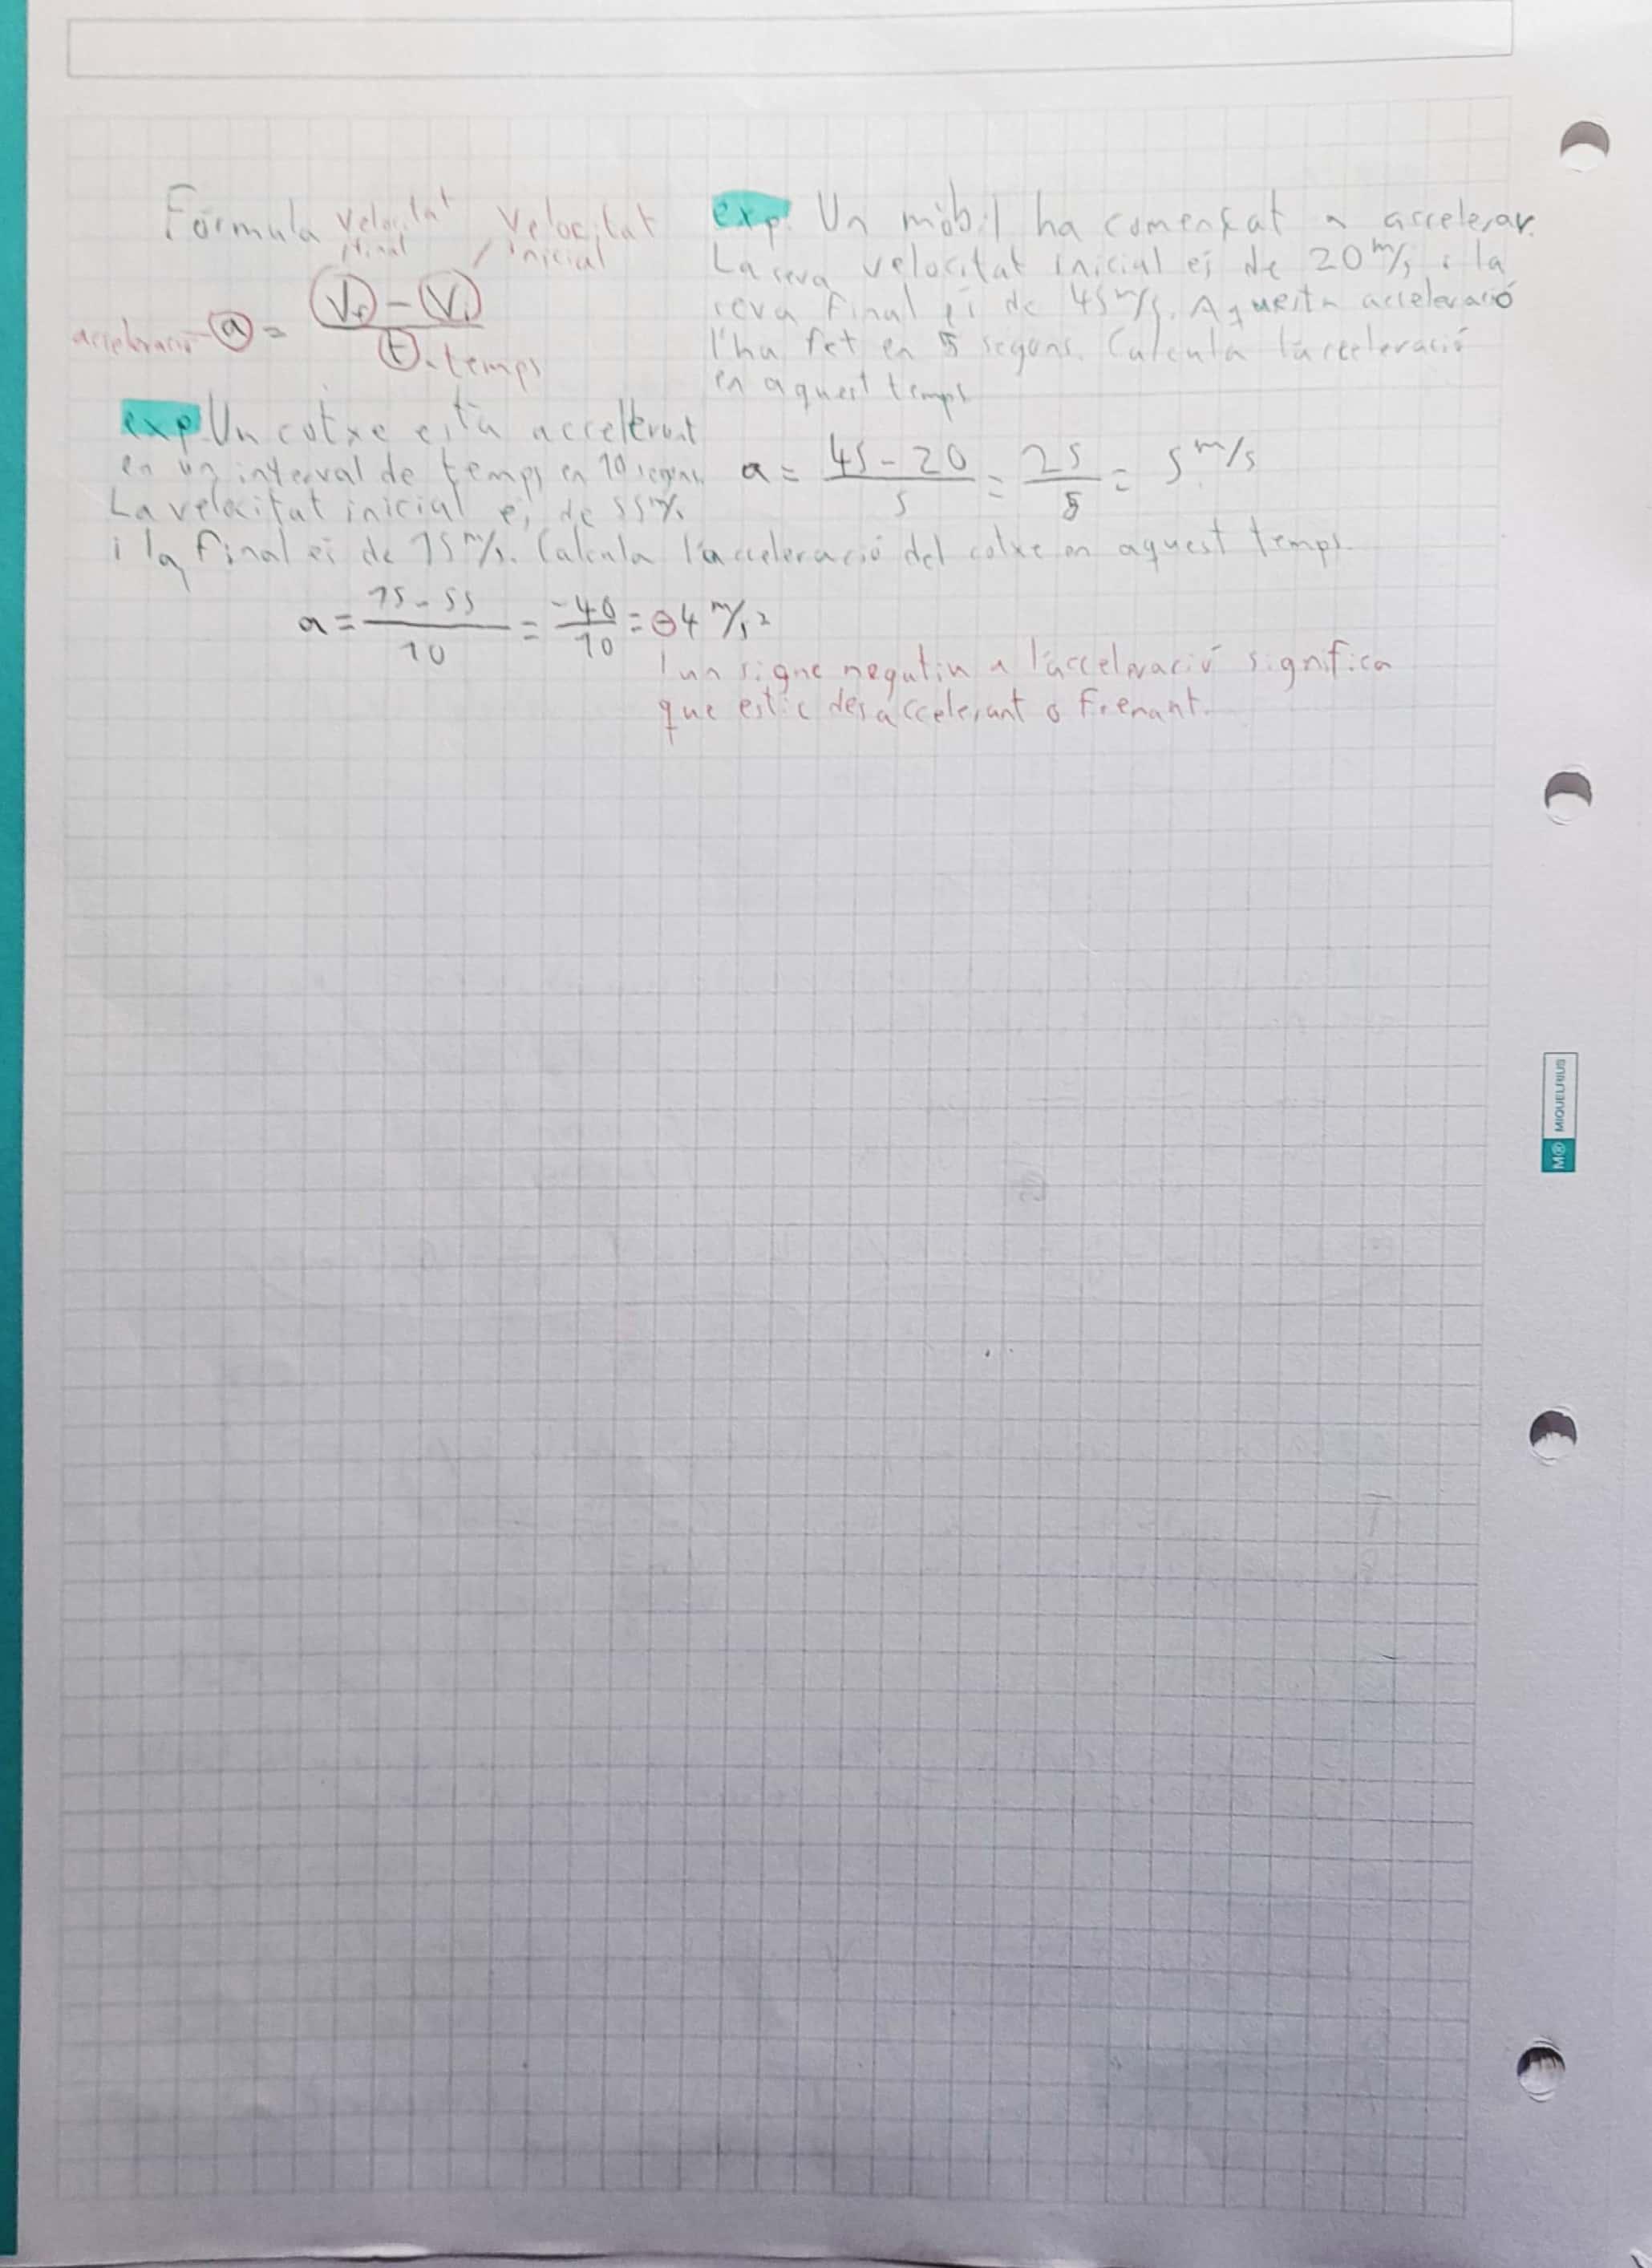 Formula velocitat final velocitat inicial
acceleració a = Vf - Vi / t temps
exp. Un mòbil ha començat a accelerar.
La seva velocitat inicial és de 20 m/s i la
seva final és de 45 m/s. Aquesta acceleració
l'ha fet en 5 segons. Calcula l'acceleració
en aquest temps
a = 45 - 20 / 5 = 25 / 5 = 5 m/s
exp. Un cotxe està accelerant
en un interval de temps en 10 segons.
La velocitat inicial és de 55 m/s
i la final és de 15 m/s. Calcula l'acceleració del cotxe en aquest temps.
a = 15 - 55 / 10 = -40 / 10 = -4 m/s²
un signe negatiu a l'acceleració significa
que estic desaccelerant o frenant.
M® MIQUELRIUS